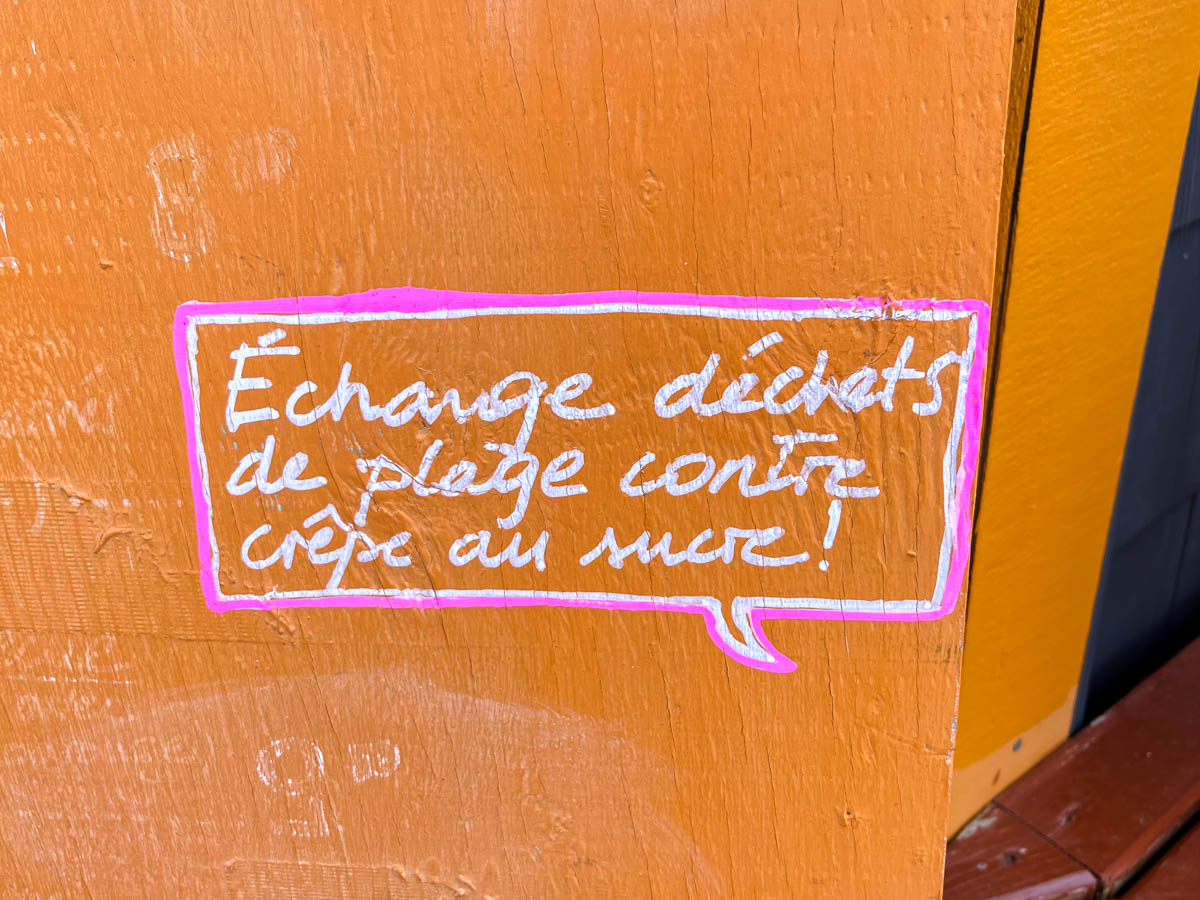 Échange déchets
de plage contre
crêpe au sucre!